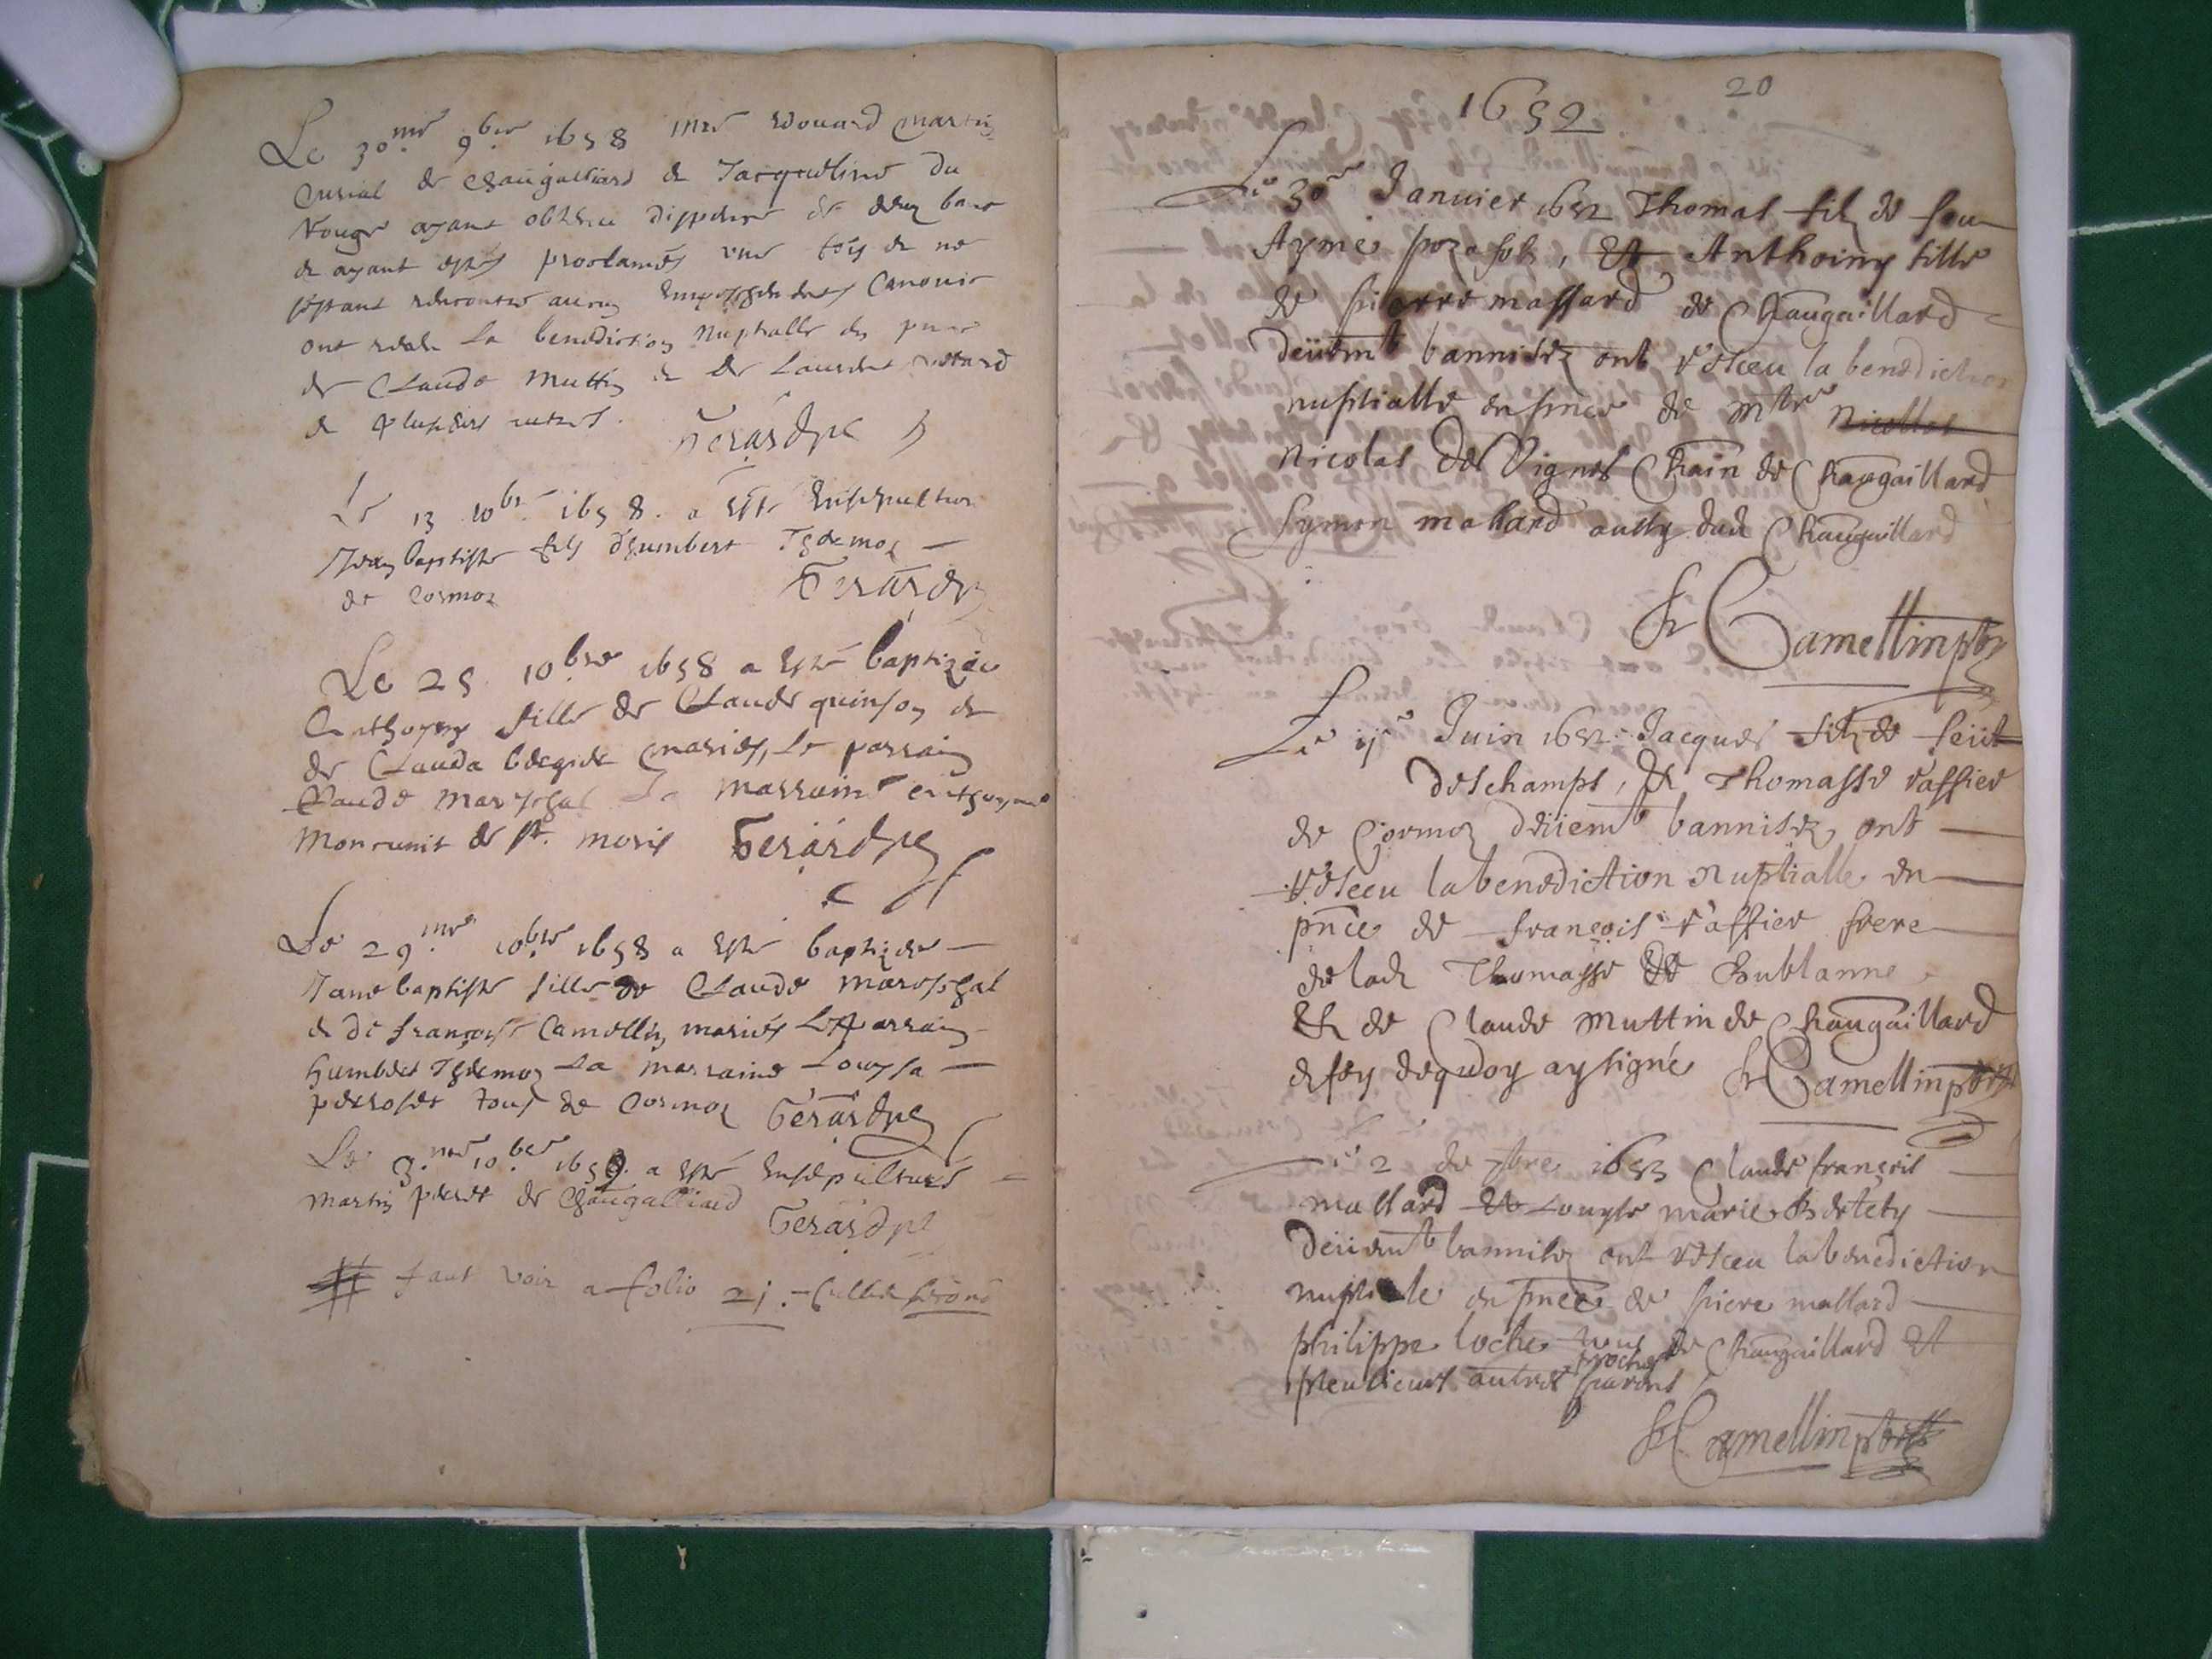 Le 30.me 9.bre 1658 mre Edouard martin
Curial de Chaũgalliard & Jacqueline du
Rouge ayant obtenu dispense de deux bans
& ayant estés proclamés une fois & ne
sestant rencontré aucun empeschement Canonic
ont receu la benediction nuptialle en pnce
de Claude Muttin & de Laurent
& plusieurs autres.
Gerard pre
Le 13 10br. 1658. a esté ensepulturé
Jean baptiste fils d'humbert Thevenoz
de Cormoz
Gerard
Le 25 10bre 1658 a esté baptizée
Anthoyne fille de Claude quinson &
de Clauda mariés, le parrain
Claude mareschal la marraine anthoyne
de st. moris Gerard pre
Le 29.me 10.bre 1658 a esté baptizée
Jane baptiste fille de Claude mareschal
& de françoise Camellin mariés le parrain
humbert Thevenoz la marraine Louysa
tous de Cormoz Gerard pre
Le 3.me 10.bre 1659. a esté ensepulturé
martin perret de Chaũgalliard
Gerard pre
# faut voir a folio 21.
20
1652
Le 30e Januier 1652 Thomas filz de feu
Ayme, & Anthoiny fille
de pierre massard de Chaugaillard
deüemt bannisez ont receu la benediction
nuptialle en pnce de mtre Nicollas
Nicolas des Vignes Chãin de Chaugaillard
Symon mallard aussy dud Chaugaillard
Fr Camellin pbre
Le ije Juin 1652 Jacques filz de
deschamps, & Thomasse raffier
de Cormoz deüemt bannisez, ont
receu la benediction Nuptialle en
pnce de françois raffier frere
de lad Thomasse de Bublanne
Et de Claude Muttin de Chaugaillard
en foy dequoy ay signé Fr Camellin pbre
Le 2 de 7bre 1653 Claude françois
mallard & Louyse marie
deüemt bannisez ont receu la benediction
nuptiale en pnce de piere mallard
philippe loche tous de Chaugaillard et
pleusieurs autres proches parens
Fr Camellin pbre